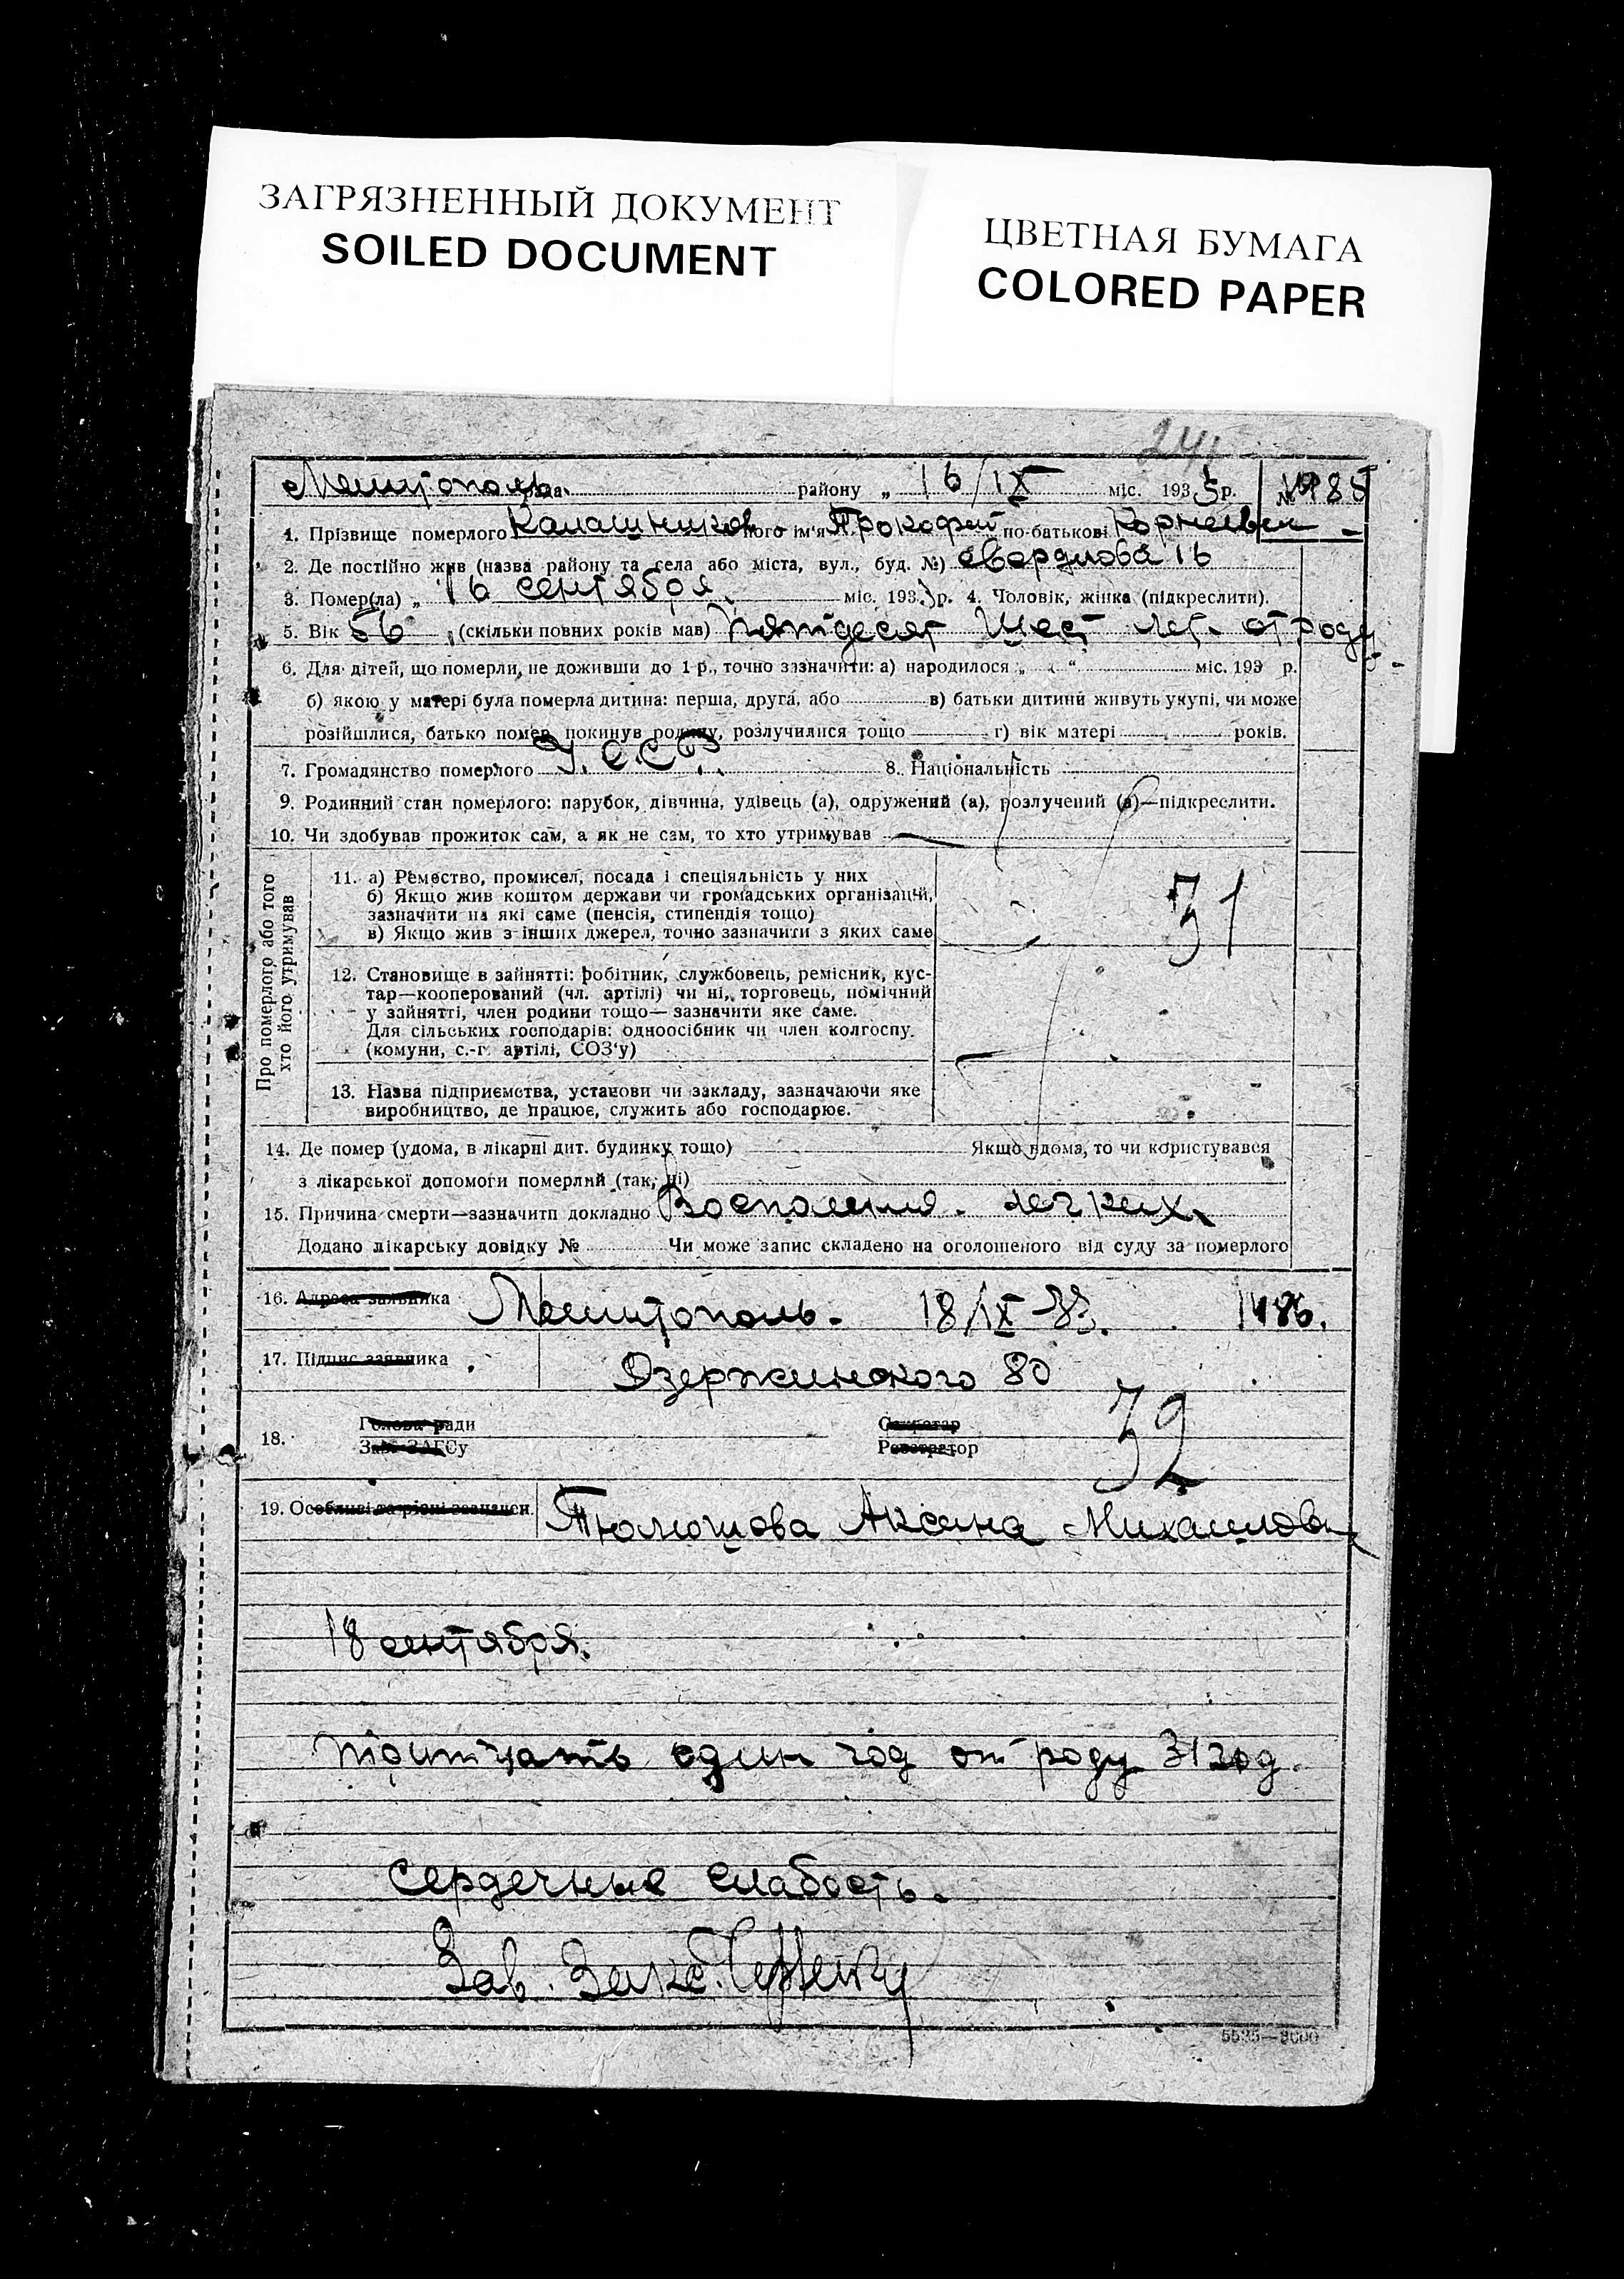 ЗАГРЯЗНЕННЫЙ ДОКУМЕНТ
SOILED DOCUMENT
ЦВЕТНАЯ БУМАГА
COLORED PAPER
241
Мелитополь району „ 16/IX міс. 1933 р. № 1485
1. Прізвище померлого Калашников його ім'я Прокофий по-батькові Корнеевич
2. Де постійно жив (назва району та села або міста, вул., буд. №) Свердлова 16
3. Помер(ла) „ 16 сентября міс. 1933 р. 4. Чоловік, жінка (підкреслити).
5. Вік 56 (скільки повних років мав) Пятдесят шест лет от роду
6. Для дітей, що померли, не доживши до 1 р., точно зазначити: а) народилося „ “ міс. 193 р.
б) якою у матері була померла дитина: перша, друга, або в) батьки дитини живуть укупі, чи може
розійшлися, батько помер, покинув родину, розлучилися тощо г) вік матері років.
7. Громадянство померлого У.С.С.Р. 8. Національність
9. Родинний стан померлого: парубок, дівчина, удівець (а), одружений (а), розлучений (а)—підкреслити.
10. Чи здобував прожиток сам, а як не сам, то хто утримував
Про померлого або того
хто його утримував
11. а) Ремество, промисел, посада і спеціяльність у них
б) Якщо жив коштом держави чи громадських організацій,
зазначити на які саме (пенсія, стипендія тощо)
в) Якщо жив з інших джерел, точно зазначити з яких саме
31
12. Становище в зайнятті: робітник, службовець, ремісник, кус-
тар—кооперований (чл. артілі) чи ні, торговець, помічний
у зайнятті, член родини тощо— зазначити яке саме.
Для сільських господарів: одноосібник чи член колгоспу.
(комуни, с.-г. артілі, СОЗ'у)
13. Назва підприємства, установи чи закладу, зазначаючи яке
виробництво, де працює, служить або господарює.
14. Де помер (удома, в лікарні дит. будинку тощо) Якщо вдома, то чи користувався
з лікарської допомоги померлий (так, ні)
15. Причина смерти—зазначити докладно Воспаления легких.
Додано лікарську довідку № Чи може запис складено на оголошеного від суду за померлого
16. Адреса заявника Мелитополь. 18/IX-33. 1486.
17. Підпис заявника Дзержинского 80
18. Голова ради Секретар
Зав. ЗАГСу Реєстратор
32
19. Особливі та різні зазначен. Тюлюпова Аксина Михаиловн
18 сентября.
тритцать один год от роду 31 год.
Сердечные слабость.
Зав. Загс.
5535—8000